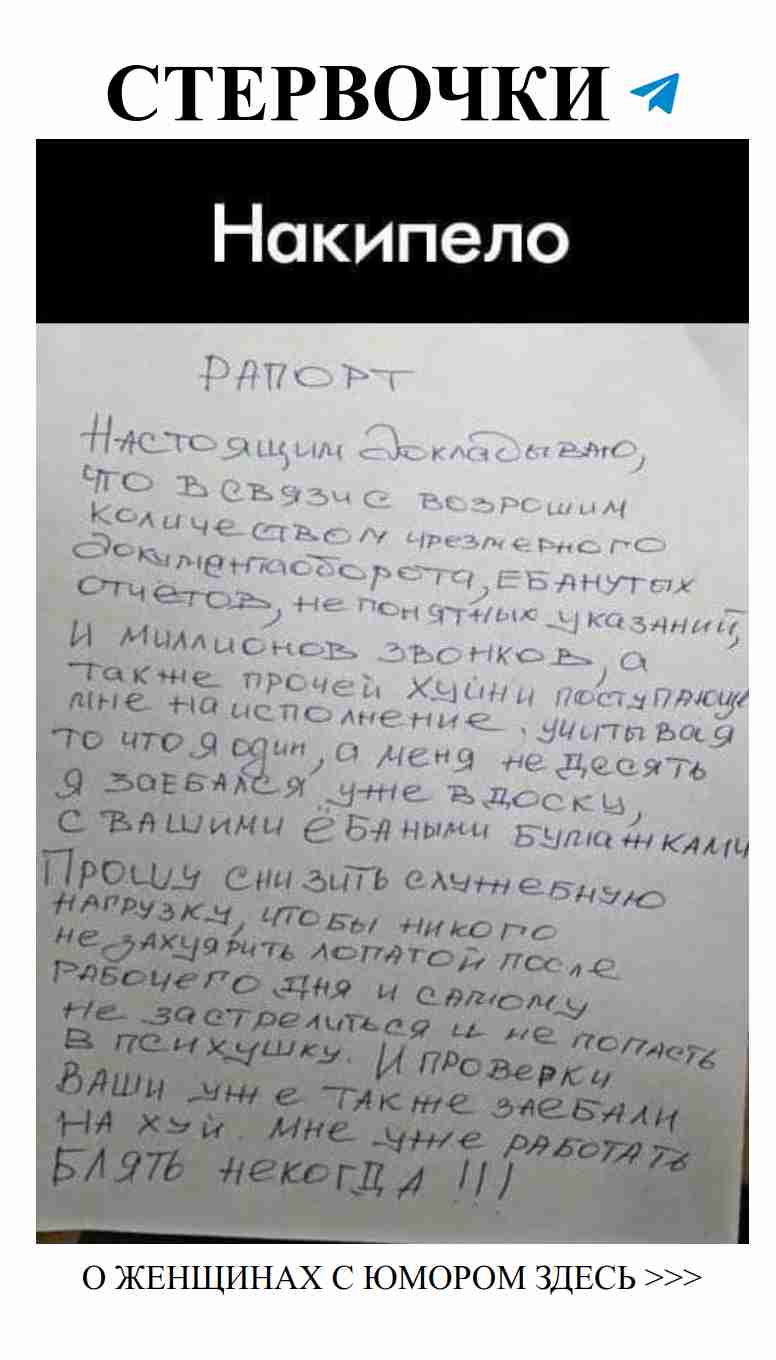 СТЕРВОЧКИ
Накипело
РАПОРТ
Настоящим докладываю,
что в связи с возросшим
количеством чрезмерного
документаоборота, ЕБАНУТЫХ
отчетов, не понятных указаний,
и миллионов звонков, а
также прочей хуйни поступающе
мне на исполнение, учитывая
то что я один, а меня не десять
Я заебался уже в доску,
с вашими ёбаными бумажками
Прошу снизить служебную
нагрузку, чтобы никого
не захуярить лопатой после
рабочего дня и самому
не застрелиться и не попасть
в психушку. И проверки
ваши уже также заебали
на хуй. Мне уже работать
блять некогда !!!
О ЖЕНЩИНАХ С ЮМОРОМ ЗДЕСЬ >>>